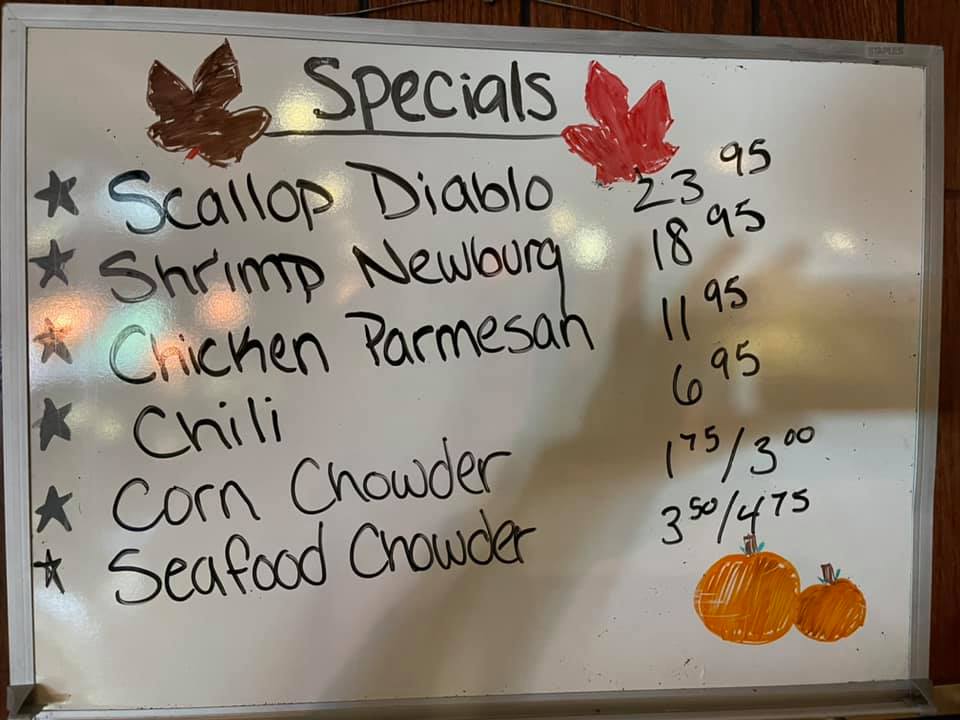 STAPLES
Specials
Scallop Diablo 23 95
Shrimp Newburg 18 95
Chicken Parmesan 11 95
Chili 6 95
Corn Chowder 1 75/3 00
Seafood Chowder 3 50/4 75